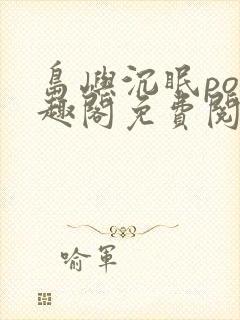 島嶼沉眠po
趣閣免費閱
喻軍